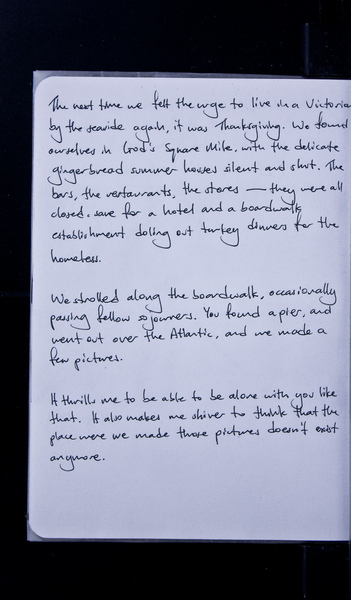 The next time we felt the urge to live in a Victoria
by the seaside again, it was Thanksgiving. We found
ourselves in God's Square Mile, with the delicate
gingerbread summer houses silent and shut. The
bars, the restaurants, the stores — they were all
closed, save for a hotel and a boardwalk
establishment doling out turkey dinners for the
homeless.
We strolled along the boardwalk, occasionally
passing fellow sojourners. You found a pier, and
went out over the Atlantic, and we made a
few pictures.
It thrills me to be able to be alone with you like
that. It also makes me shiver to think that the
place were we made those pictures doesn't exist
anymore.